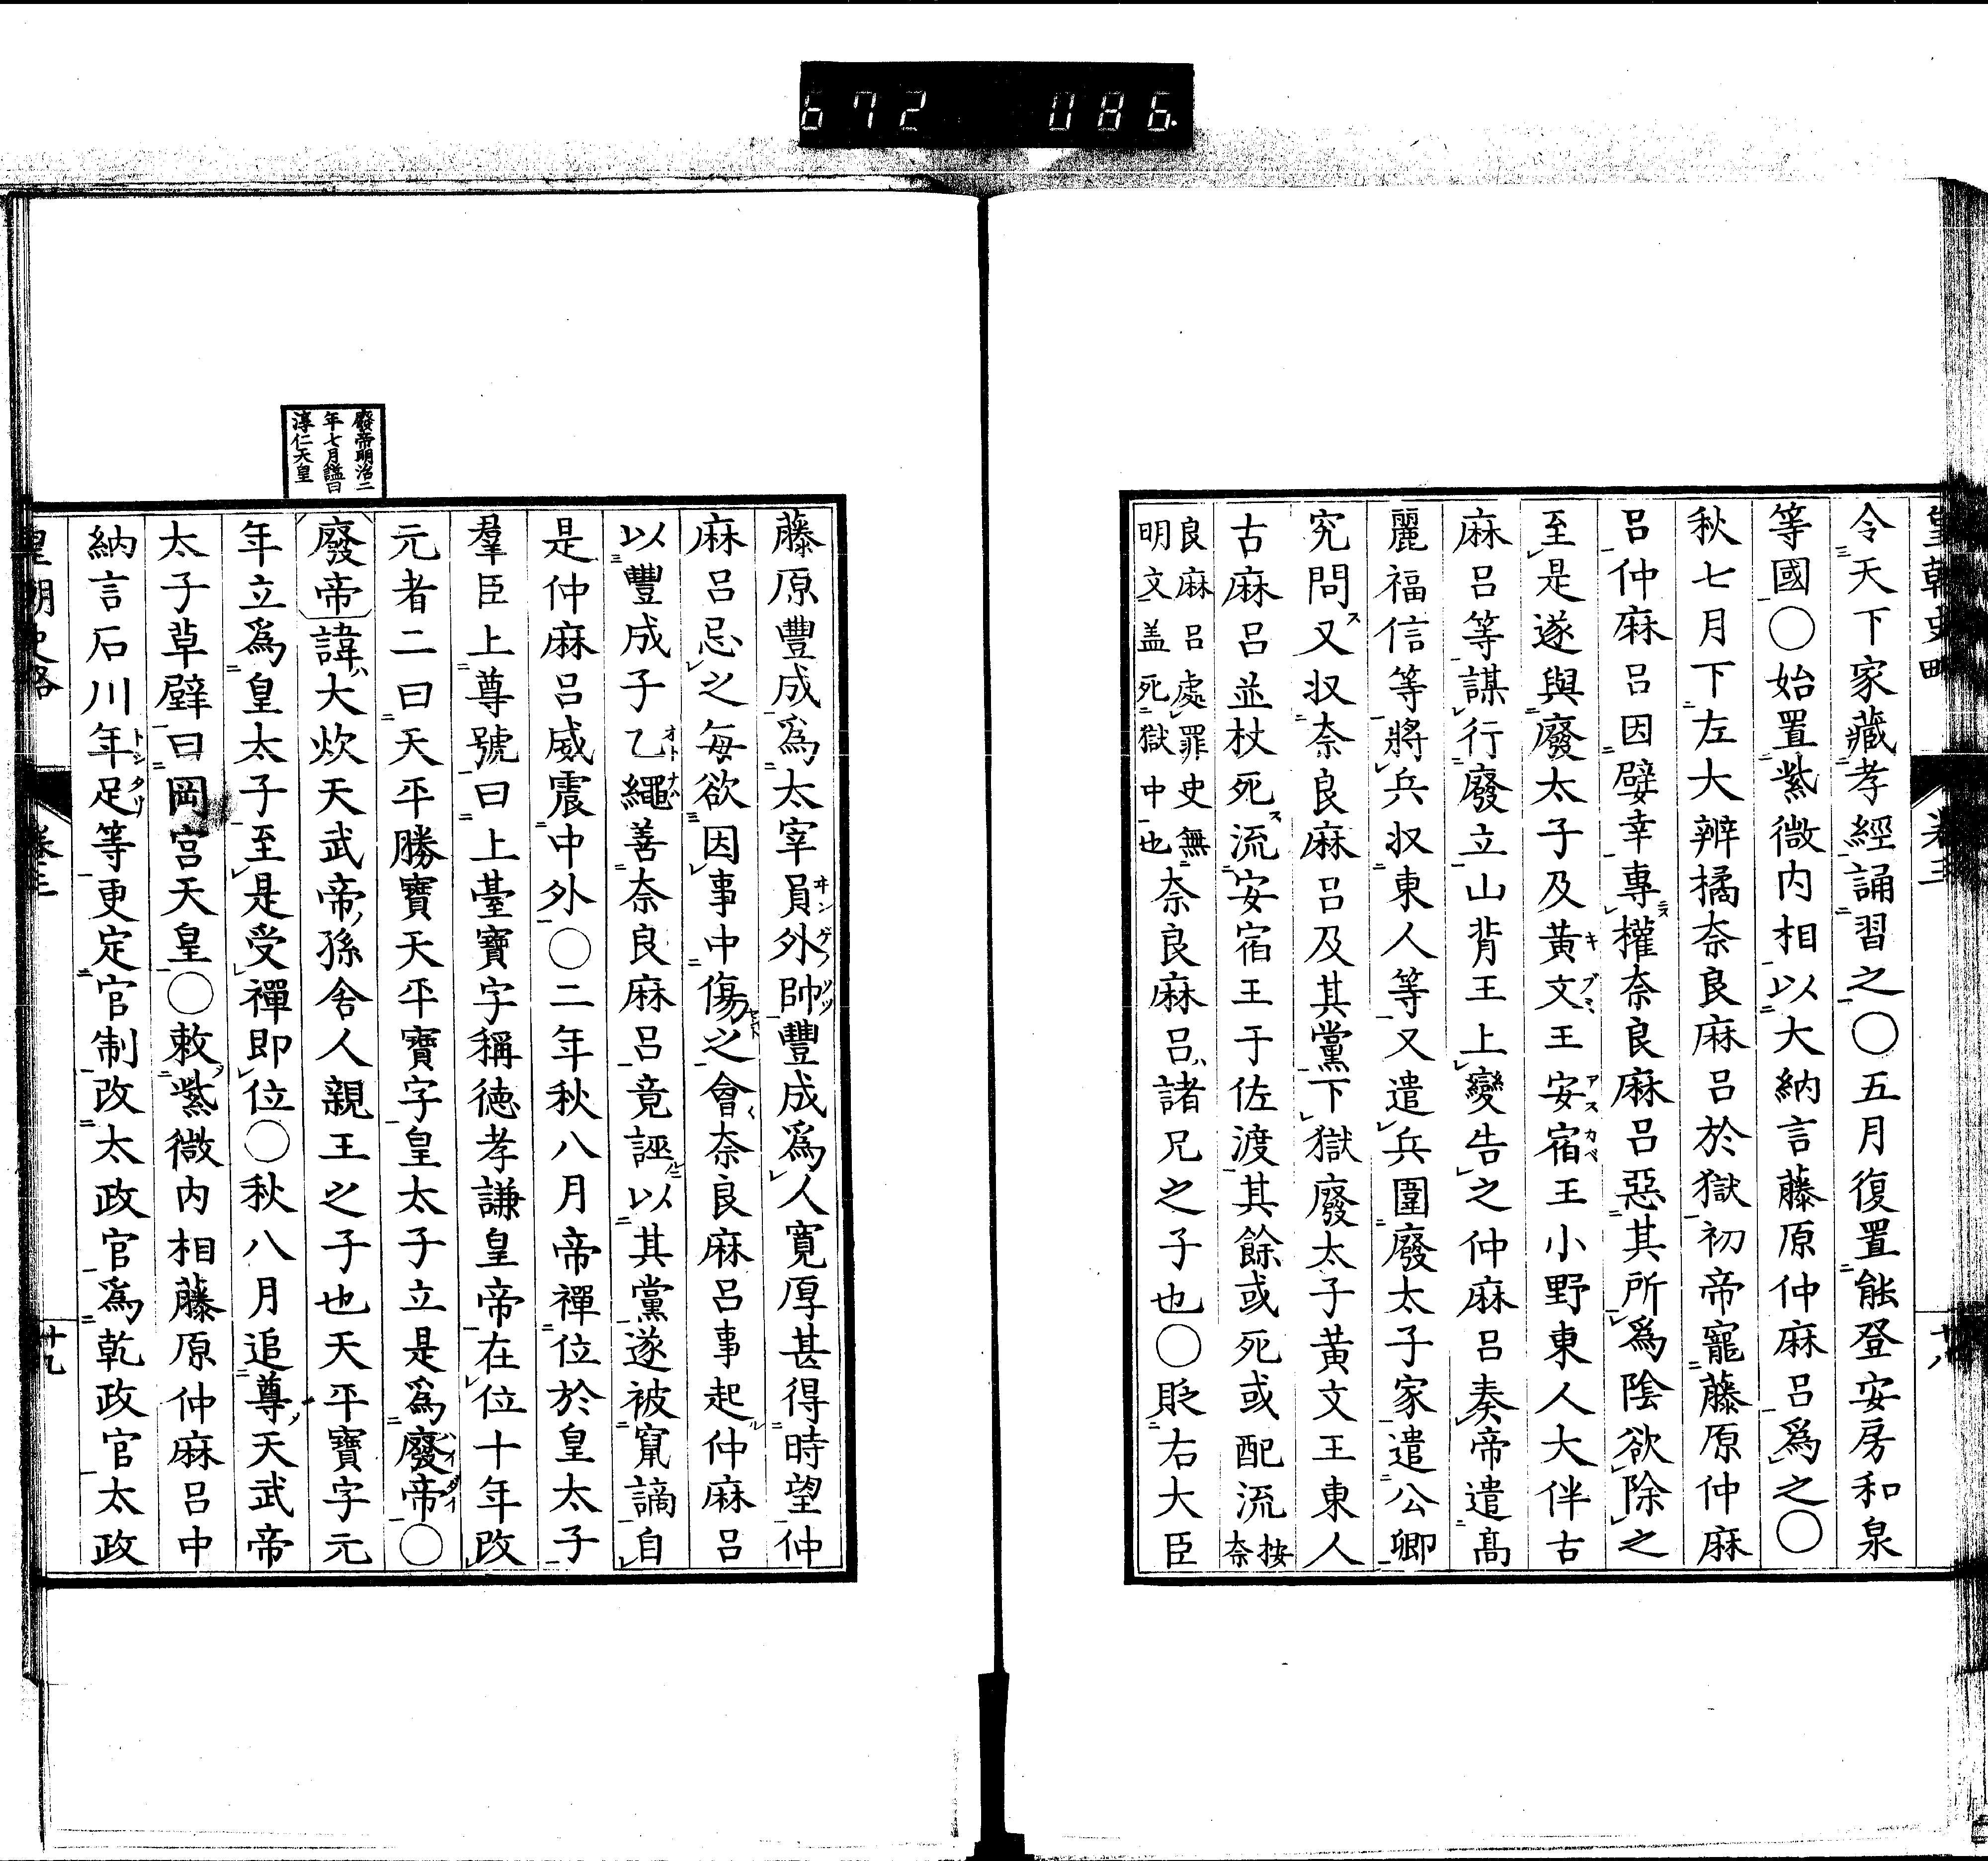 672 086
皇朝史略 卷三 廿八
令天下家藏孝經誦習之〇五月復置能登安房和泉
等國〇始置紫微内相以大納言藤原仲麻呂爲之〇
秋七月下左大辨橘奈良麻呂於獄初帝寵藤原仲麻
呂仲麻呂因嬖幸專權奈良麻呂惡其所爲陰欲除之
至是遂與廢太子及黃文王安宿王小野東人大伴古
麻呂等謀行廢立山背王上變告之仲麻呂奏帝遣高
麗福信等將兵收東人等又遣兵圍廢太子家遣公卿
究問又收奈良麻呂及其黨下獄廢太子黃文王東人
古麻呂並杖死流安宿王于佐渡其餘或死或配流按奈
良麻呂處罪史無明文盖死獄中也奈良麻呂諸兄之子也〇貶右大臣
藤原豐成爲太宰員外帥豐成爲人寬厚甚得時望仲
麻呂忌之每欲因事中傷之會奈良麻呂事起仲麻呂
以豐成子乙繩善奈良麻呂竟誣以其黨遂被竄謫自
是仲麻呂威震中外〇二年秋八月帝禪位於皇太子
羣臣上尊號曰上臺寶字稱徳孝謙皇帝在位十年改
元者二曰天平勝寶天平寶字皇太子立是爲廢帝〇
廢帝明治二
年七月謚曰
淳仁天皇
廢帝諱大炊天武帝孫舍人親王之子也天平寶字元
年立爲皇太子至是受禪即位〇秋八月追尊天武帝
太子草壁曰岡宮天皇〇敕紫微内相藤原仲麻呂中
納言石川年足等更定官制改太政官爲乾政官太政
皇朝史略 卷三 廿九